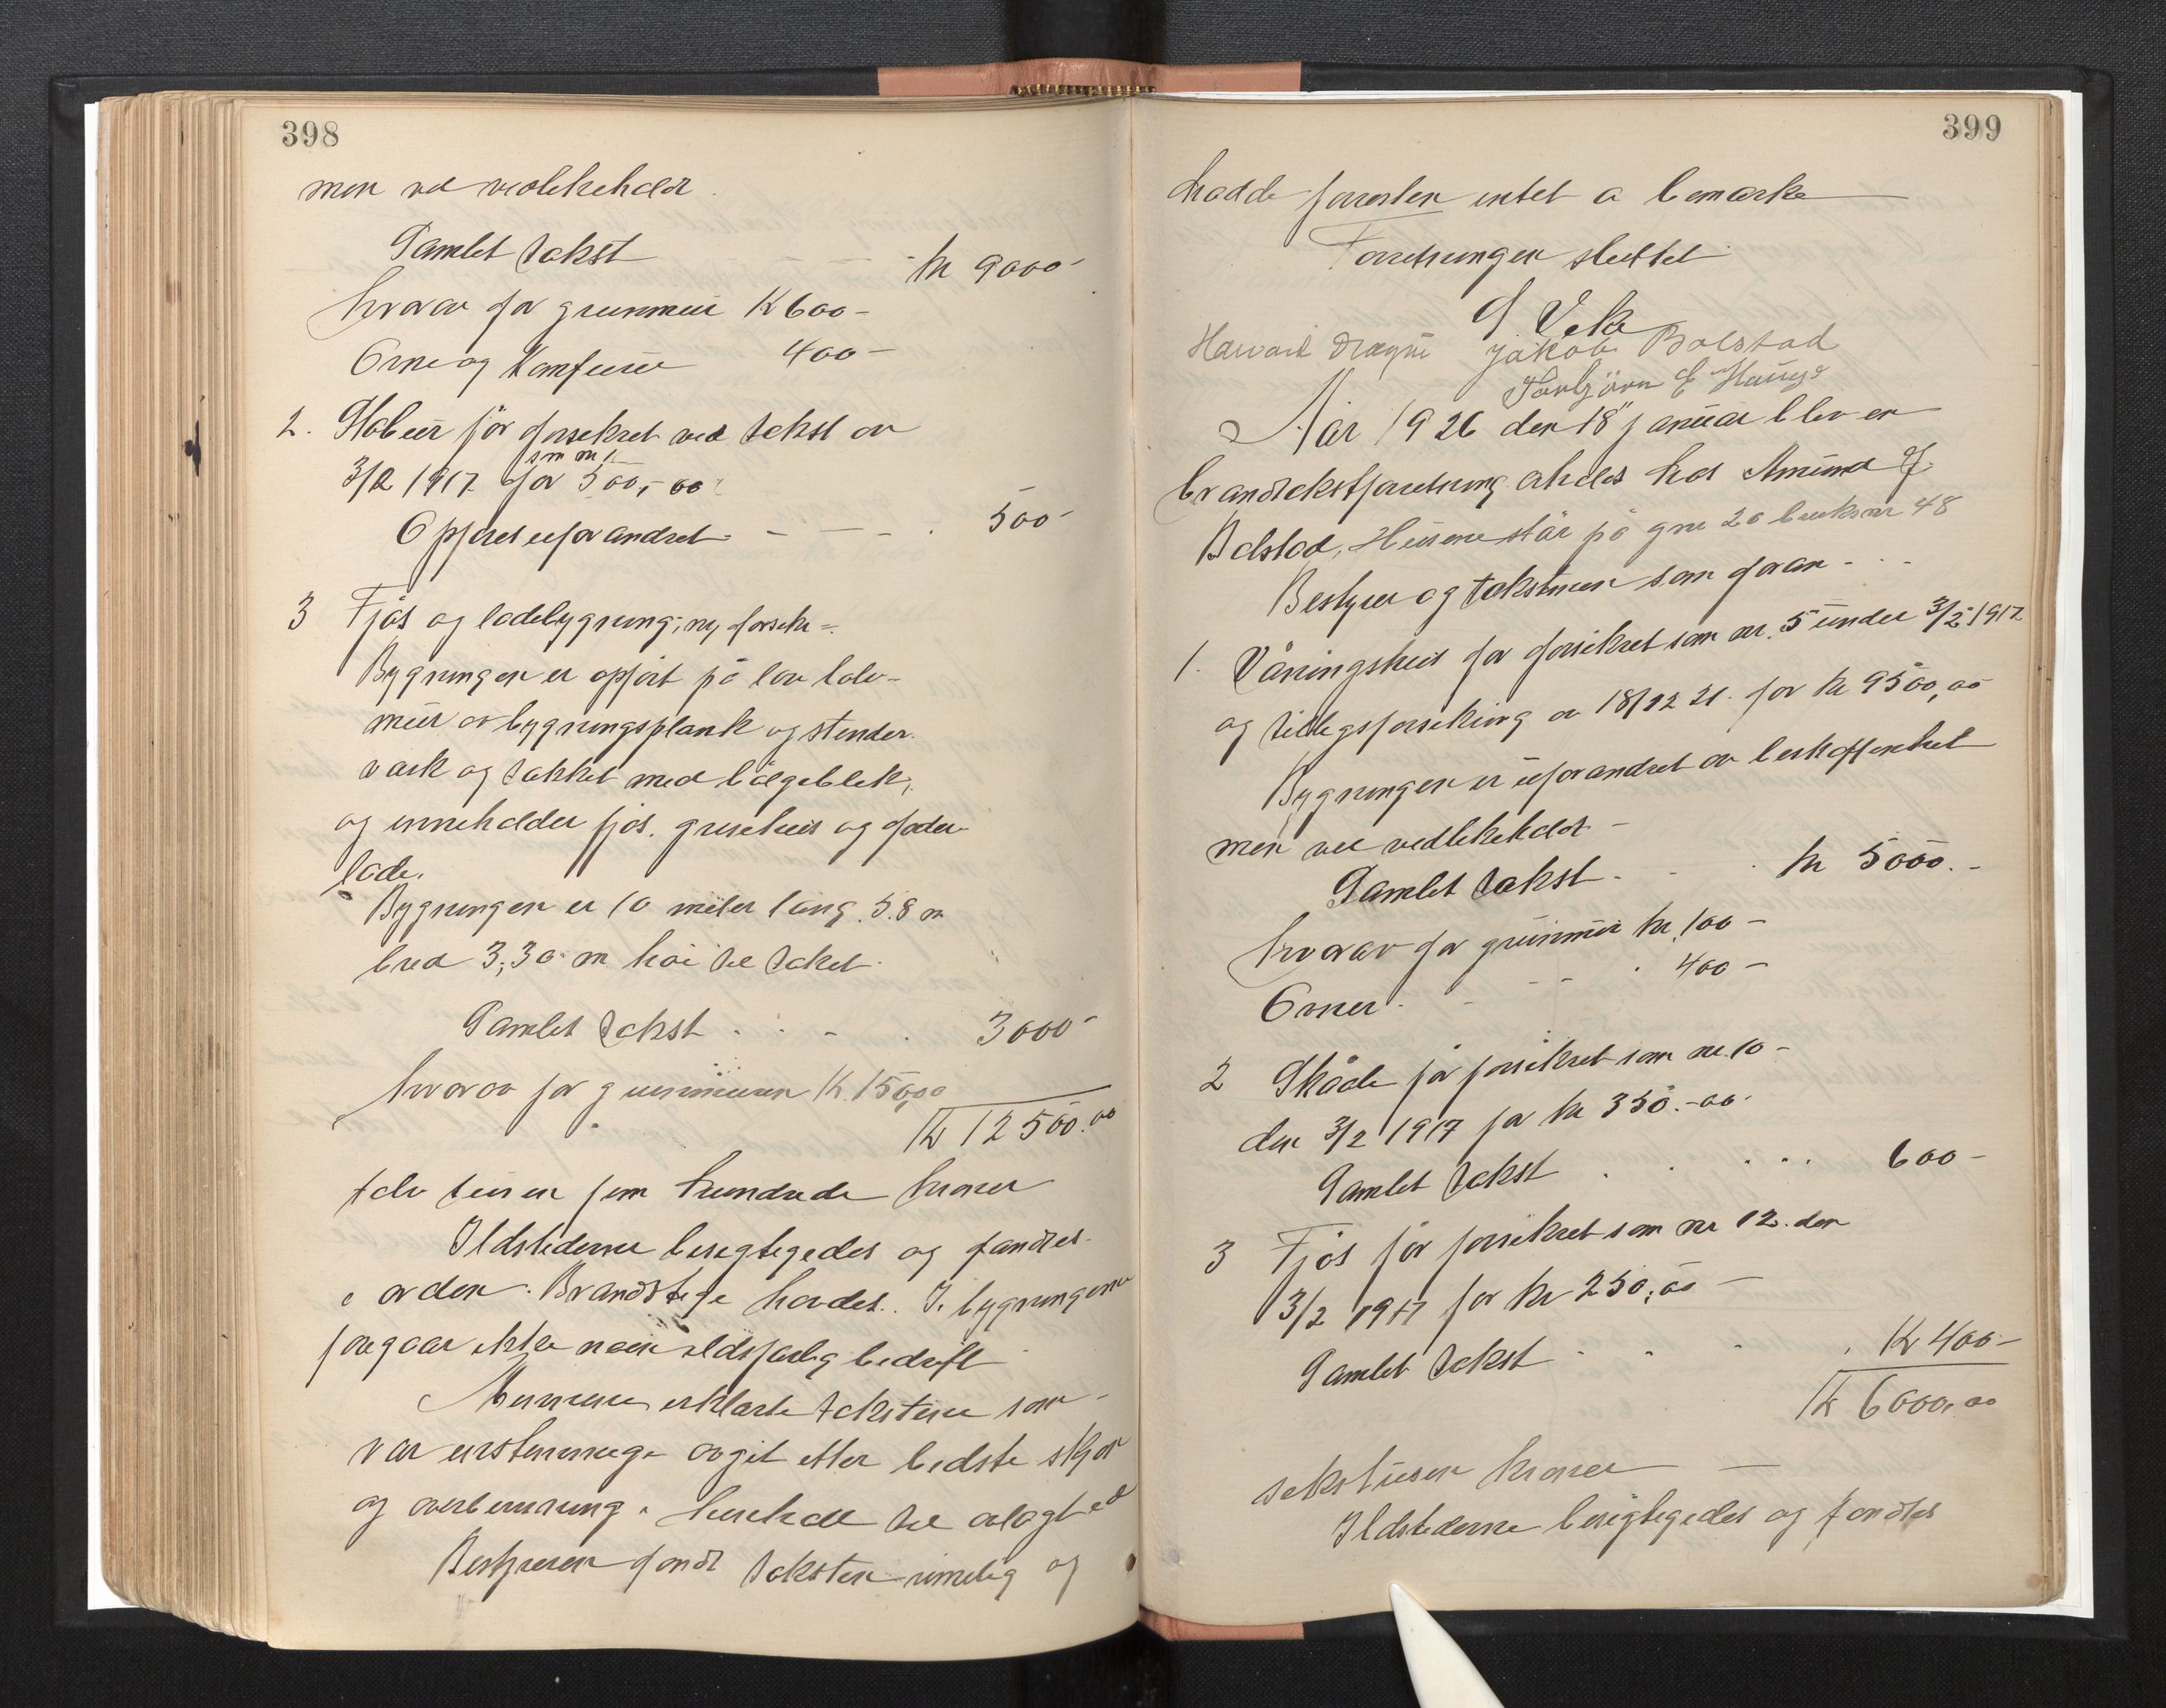 398
men vel vedlikeholdt.
Samlet takst - - - kr 9000-
hvorav for grunmur K 600-
Ovne og Komfurer 400-
2. Stabur før forsikret ved takst av
som nr 1
3/2 1917 for 500,-00
Opføres uforandret - - - . 500-
3 Fjøs og ladebygning, ny forsik=.
Bygningen er opført på lav talv-
mur av bygningsplank og stender-
værk og tækket med bølgeblek,
og inneholder fjøs. grisehus og foder-
lade.
Bygningen er 10 meter lang. 5.8 m
bred 3,30 m høi til taket.
Samlet takst . . - . 3000-
hvorav for grunmuren K. 150,00
Kr 12500.00
tolv tusen fem hundrede kroner
Ildstederne besigtigedes og fandtes
i orden. Brandstige havdes. I bygningene
foregaar ikke noen ildsfarlig bedrift
Mennene erklærte takstene som
var enstemmige avgit etter bedste skjøn
og overbevisning i henhold til avlagt ed
Bestyreren fandt taksten rimelig og
399
hadde forresten intet a bemærke
Forretningen sluttet
S. Veka
Havard Dragni Jakob Bolstad
Torbjörn E Hauge
Aar 1926 den 18" januar blev en
brandtakstforretning avholdes hos Amund J.
Bolstad, Husene står på gnr 20 bruksnr 48
Bestyrer og takstmen som foran - . -
1. Våningshus før forsikret som nr. 5 under 3/2 1917
og tillegsforsikring av 18/12 21. for kr 9500,00
Bygningen er uforandret av beskaffenhet
men vel vedlikeholdt -
Samlet takst . - . kr 5000.-
hvorav for grunmur kr. 100-
Ovner . - - - . 400-
2 Skåde før forsikret som nr. 10-
den 3/2 1917 for kr 350.-00.
Samlet takst . . . . . 600-
3 Fjøs før forsikret som nr 12. den
3/2 1917 for kr 250,00 -
Samlet takst . . . . K 400-
Kr 6000,00
sekstusen kroner -
Ildstederne besigtigedes og fandtes